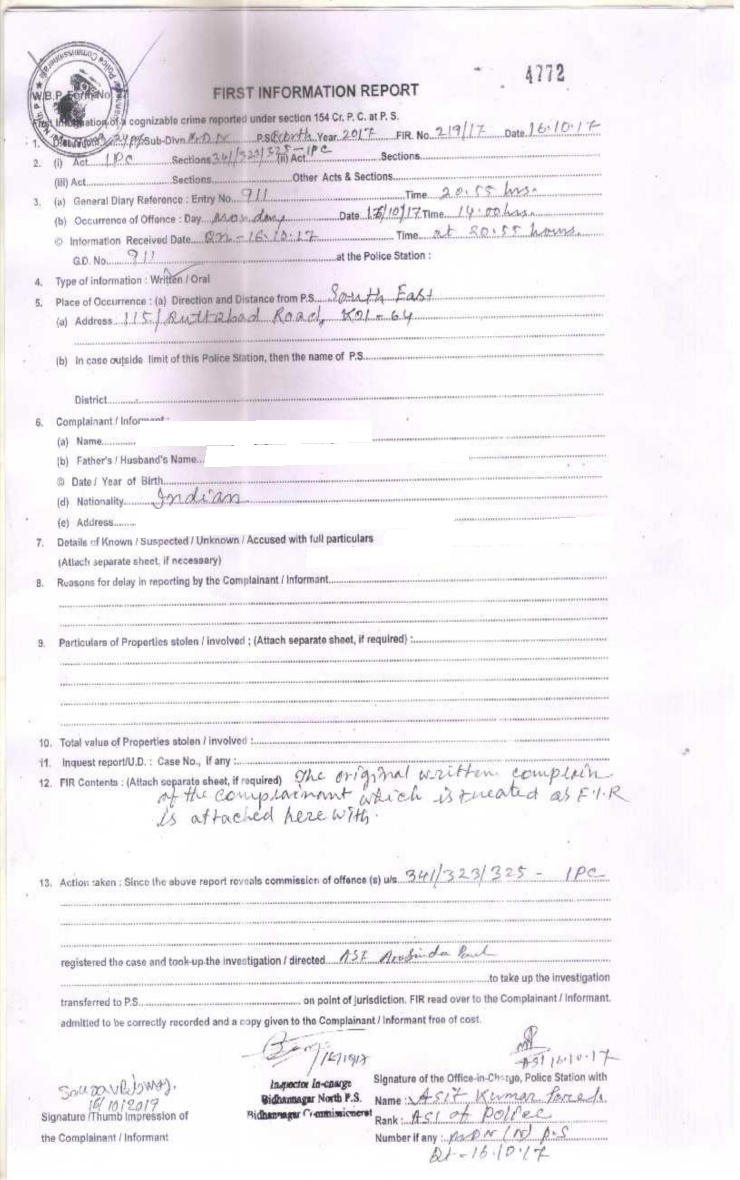 4772
W.B.P. Form No
FIRST INFORMATION REPORT
First Information of a cognizable crime reported under section 154 Cr. P. C. at P. S.
1. Sub-Divn. BDN P.S. (North) Year 2017 FIR. No. 219/17 Date. 16.10.17
2. (i) Act IPC Sections 341/323/325-IPC (ii) Act Sections
(iii) Act Sections Other Acts & Sections
3. (a) General Diary Reference : Entry No. 911 Time 20.55 hrs.
(b) Occurrence of Offence : Day Monday Date 16/10/17 Time 14.00 hrs.
© Information Received Date on-16.10.17 Time at 20.55 hours.
G.D. No. 911 at the Police Station :
4. Type of information : Written / Oral
5. Place of Occurrence : (a) Direction and Distance from P.S. South East
(a) Address 115/ Duttabad Road, Kol-64
(b) In case outside limit of this Police Station, then the name of P.S.
District
6. Complainant / Informant :
(a) Name
(b) Father's / Husband's Name
© Date / Year of Birth
(d) Nationality Indian
(e) Address
7. Details of Known / Suspected / Unknown / Accused with full particulars
(Attach separate sheet, if necessary)
8. Reasons for delay in reporting by the Complainant / Informant
9. Particulars of Properties stolen / involved ; (Attach separate sheet, if required) :
10. Total value of Properties stolen / involved :
11. Inquest report/U.D. : Case No., If any :
12. FIR Contents : (Attach separate sheet, if required) The original written complain
of the complainant which is treated as F.I.R
is attached here with.
13. Action taken : Since the above report reveals commission of offence (s) u/s 341/323/325 - IPC
registered the case and took-up the investigation / directed ASI
to take up the investigation
transferred to P.S. on point of jurisdiction. FIR read over to the Complainant / Informant.
admitted to be correctly recorded and a copy given to the Complainant / Informant free of cost.
16/10/17
ASI 16.10.17
16/10/2017
Inspector In-charge
Bidhannagar North P.S.
Bidhannagar Commissionerat
Signature /Thumb Impression of
the Complainant / Informant
Signature of the Office-in-Charge, Police Station with
Name : Asit Kumar
Rank : ASI of Police
Number if any : BDN (N) P.S
Dt-16.10.17